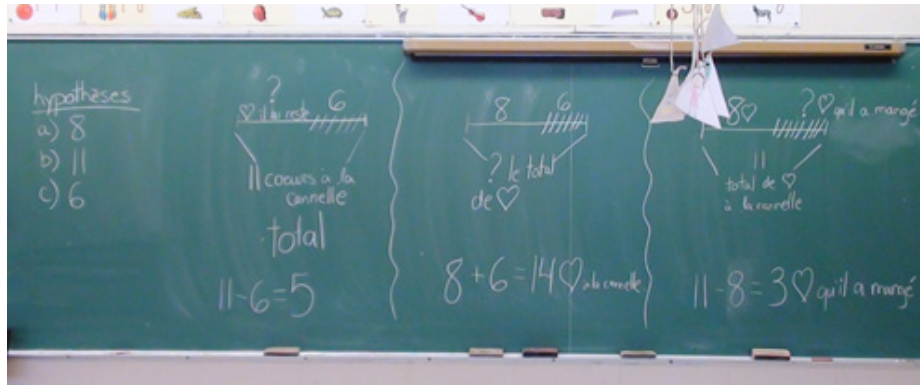 hypothèses
a) 8
b) 11
c) 6
?
♡ il lui reste 6
11 coeurs à la
cannelle
total
11-6=5
8 6
? le total
de ♡
8+6=14♡ à la cannelle
8♡ ?♡ qu'il a mangé
11
total de ♡
à la cannelle
11-8=3♡ qu'il a mangé